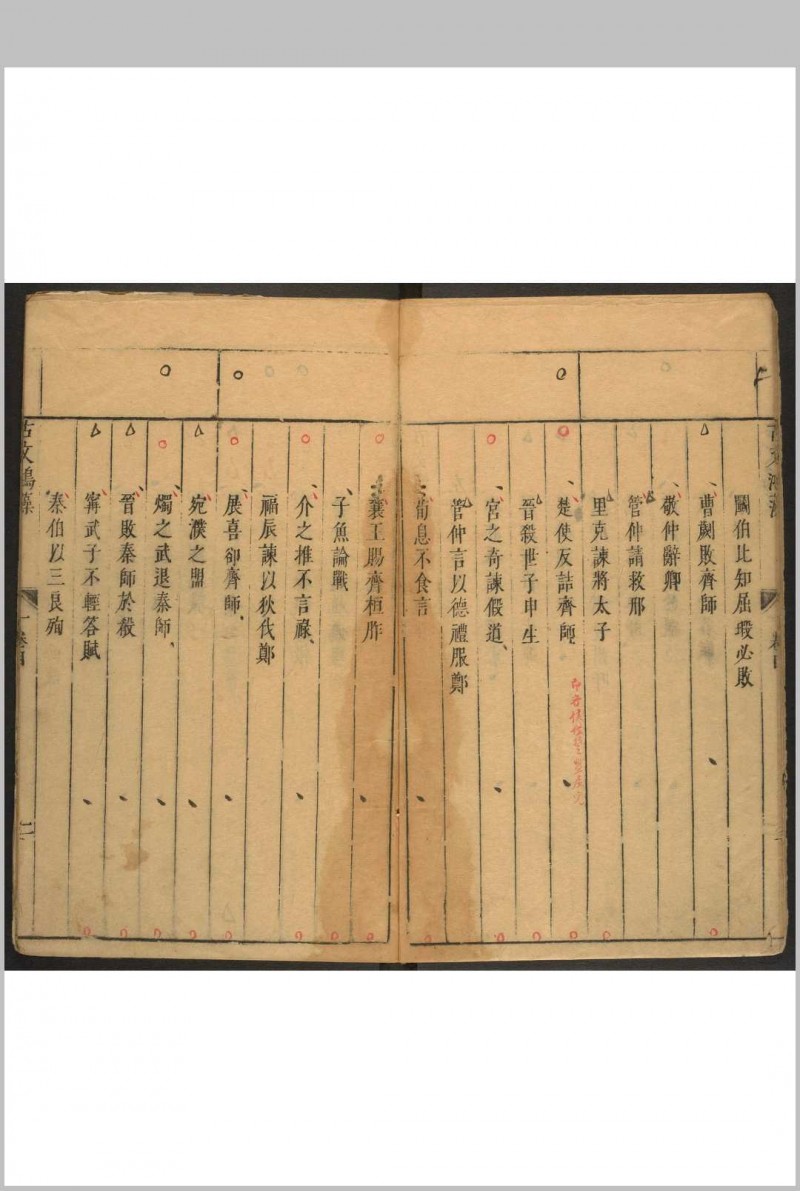 鬬伯比知屈瑕必敗
曹劌敗齊師
敬仲辭卿
管仲請救邢
里克諫將太子
楚使反詰齊師
晉殺世子申生
宮之奇諫假道
管仲言以德禮服鄭
荀息不食言
襄王賜齊桓胙
子魚論戰
介之推不言祿
富辰諫以狄伐鄭
展喜卻齊師
宛濮之盟
燭之武退秦師
晉敗秦師於殽
甯武子不輕答賦
秦伯以三良殉
古文鴻藻
卷四
二